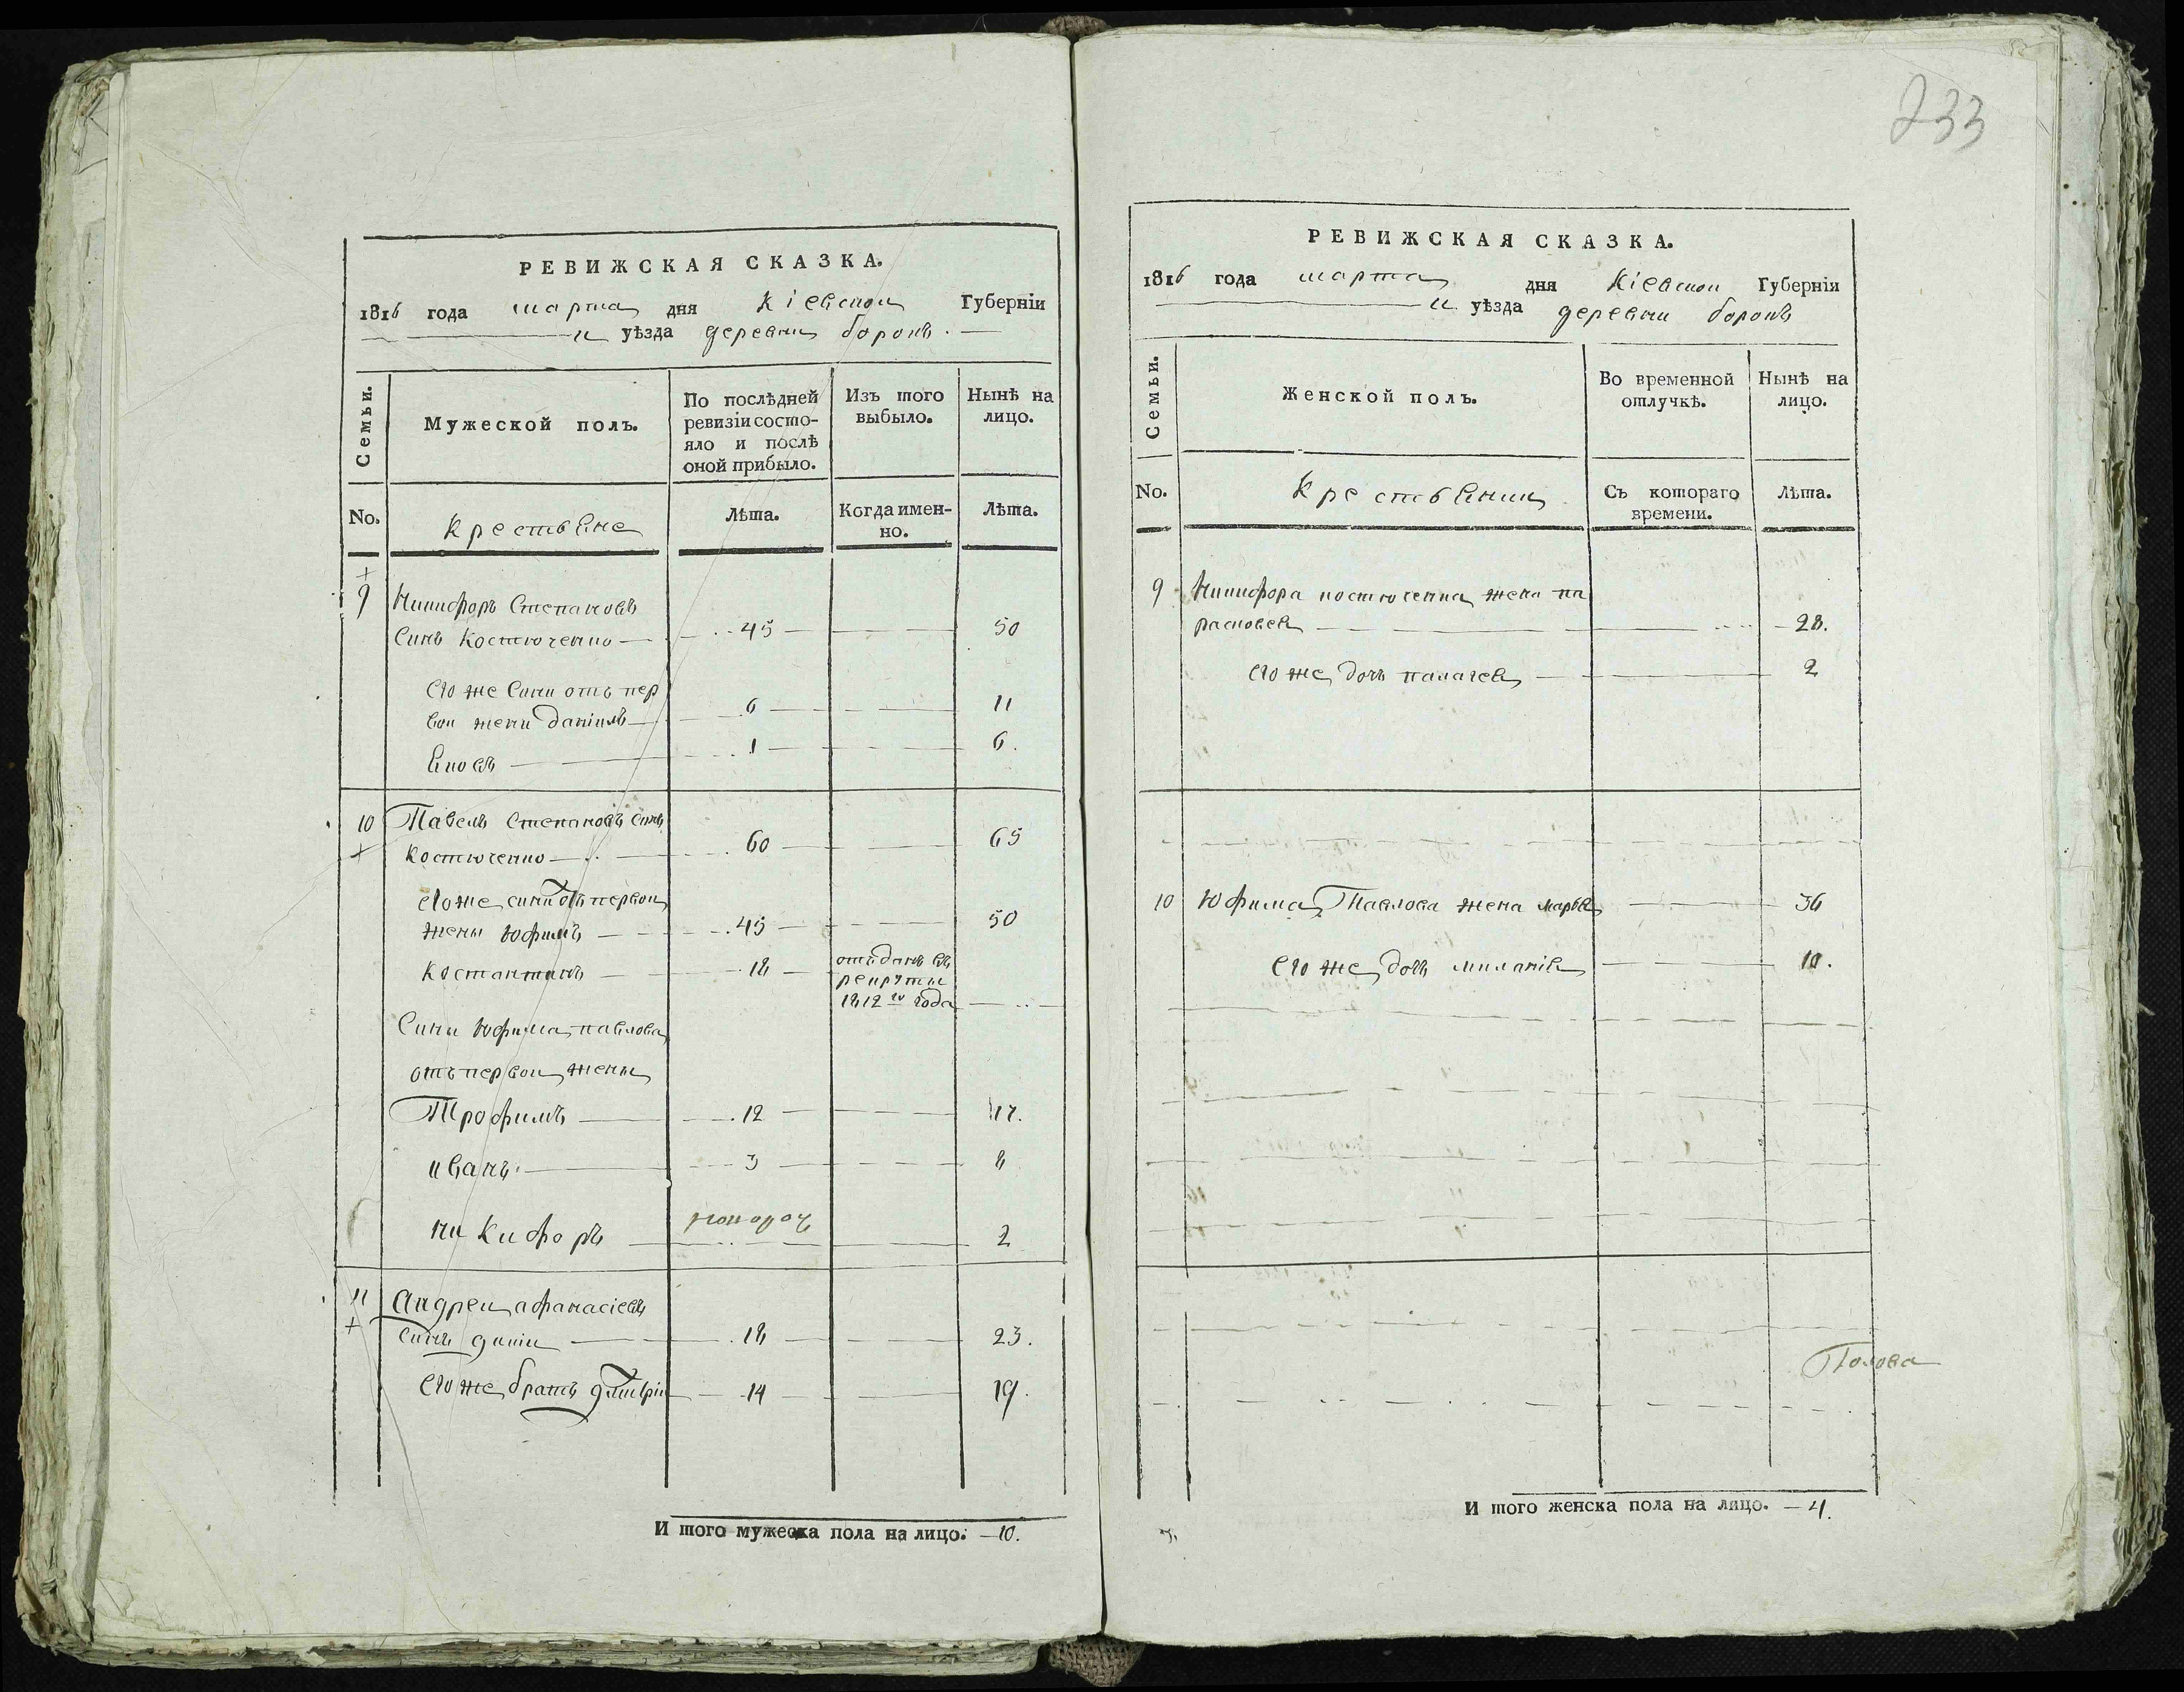 РЕВИЖСКАЯ СКАЗКА.
1816 года марта дня Кіевской Губерніи
и уѣзда деревни борокъ.
Семьи.
Мужеской полъ.
По послѣдней ревизіи состояло и послѣ оной прибыло.
Изъ того выбыло.
Нынѣ на лицо.
No.
Крестьяне
Лѣта.
Когда именно.
Лѣта.
9 Никифоръ Степановъ
Синъ Костюченко 45 50
его же Сини отъ пер
вои жени даніилъ 6 11
Яковъ 1 6.
10 Павелъ Степановъ Синъ
Костюченко 60 65
его же сини отъ первои
жены Юфимъ 45 50
Костантинъ 18 отъданъ въ
рекруты
1812го года
Сини Юфима павлова
отъ первои жены
Трофимъ 12 17.
иванъ 3 8
никифоръ новорож 2
11 Андреи афанасіевъ
Синъ 18 23.
его же братъ дмитріи 14 19.
И того мужеска пола на лицо: 10.
233
РЕВИЖСКАЯ СКАЗКА.
1816 года марта дня Кіевской Губернія
и уѣзда деревни борокъ
Семьи.
Женской полъ.
Во временной отлучкѣ.
Нынѣ на лицо.
No.
Крестьянки
Съ котораго времени.
Лѣта.
9 Никифора костюченка жена па
расковея 28.
его же дочъ палагея 2
10 Юфима Павлова жена марья 36
его же дочъ миланія 10.
И того женска пола на лицо. 4.